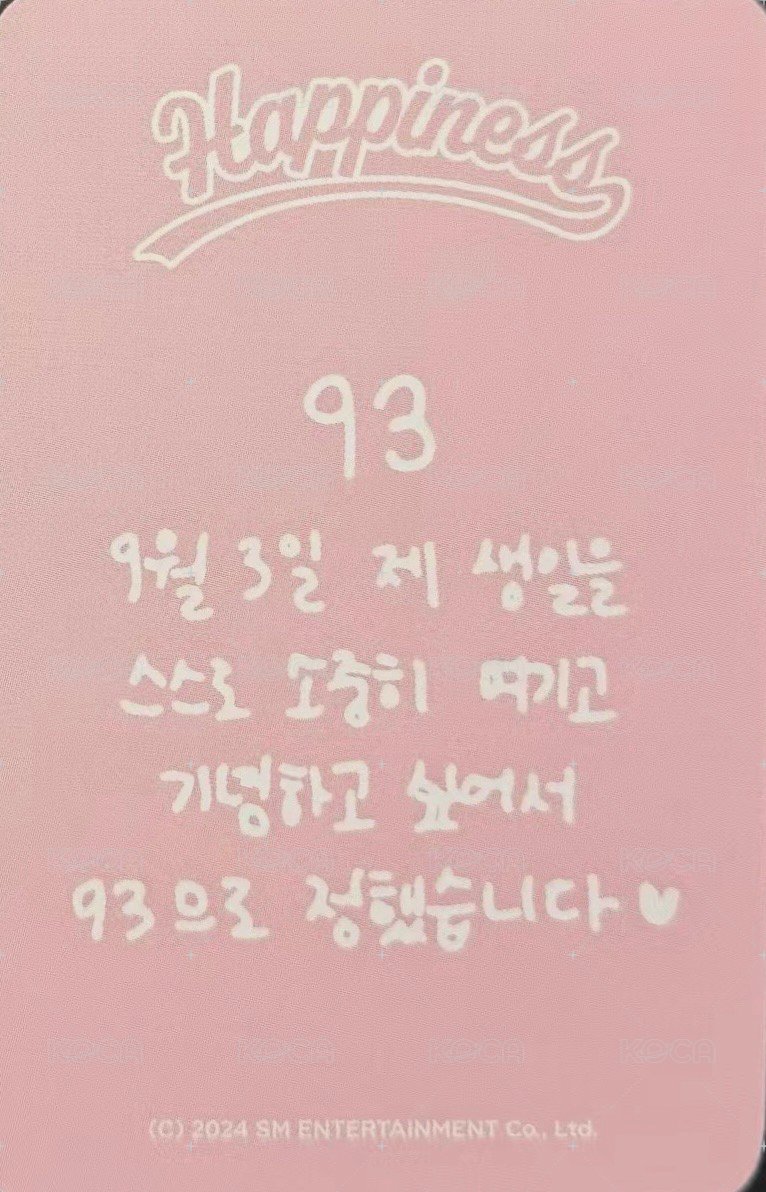 Happiness
93
9월 3일 제 생일을
스스로 소중히 여기고
기념하고 싶어서
93으로 정했습니다♥
(C) 2024 SM ENTERTAINMENT Co., Ltd.
KOCA